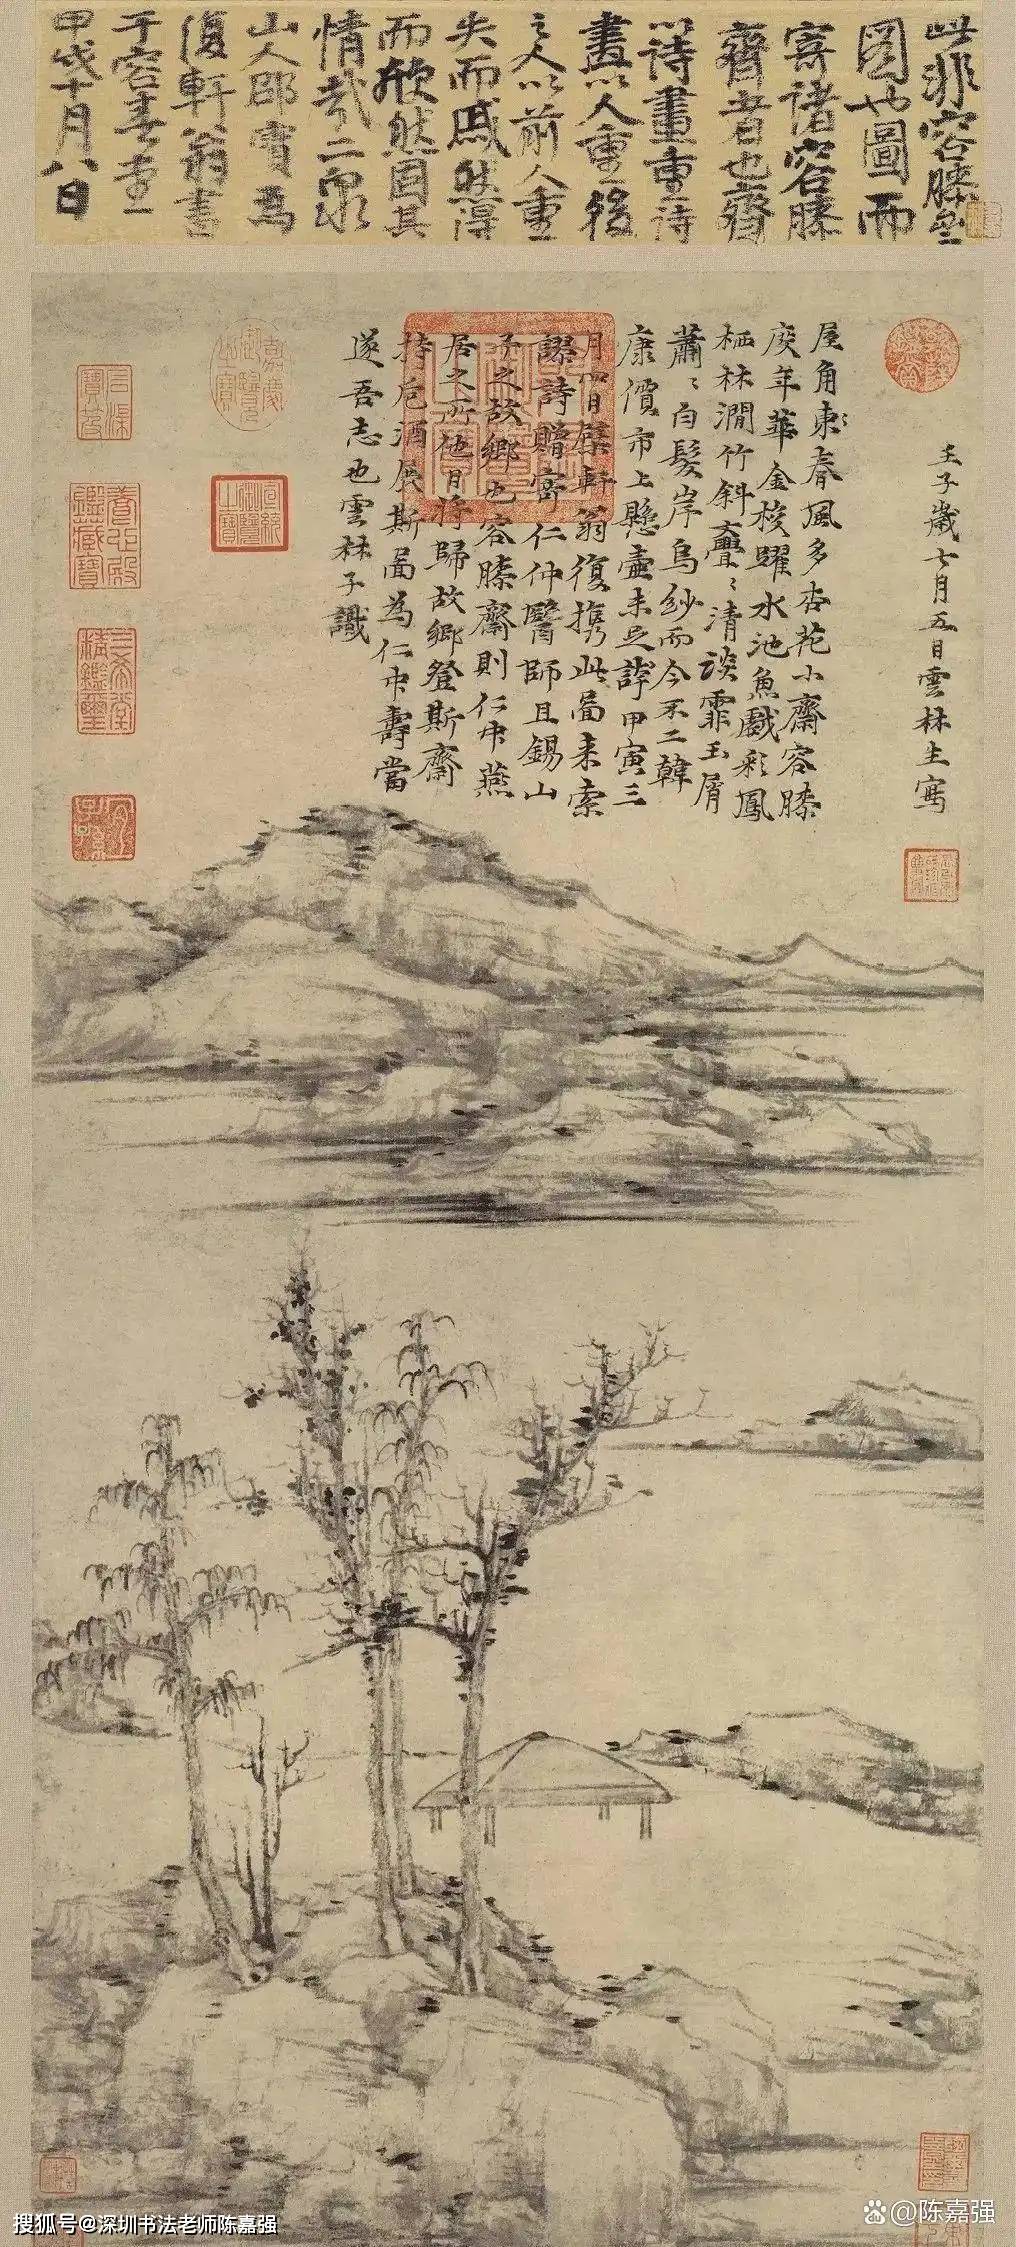 此非容膝齋
圖也圖而
寄諸容膝
齋者也齋
以詩畫重詩
畫以人重後
之人以前人重
失而戚然得
而欣然固其
情哉二泉
山人邵寶為
復軒翁書
于容春堂
甲戌十月八日
壬子歲七月五日雲林生寫
屋角東〻春風多杏花小齋容膝
度年華金梭躍水池魚戲彩鳳
栖林澗竹斜亹〻清談霏玉屑
蕭〻白髮岸烏紗而今不二韓
康價市上懸壺未足誇甲寅三
月四日檗軒翁復携此啚来索
謬詩贈寄仁仲醫師且錫山
予之故鄉也容膝齋則仁仲燕
居之所他日將歸故鄉登斯齋
持卮酒展斯啚為仁仲壽當
遂吾志也雲林子識
石渠寶笈
嘉慶御覽之寶
宣統御覽之寶
養心殿鑑藏寶
三希堂精鑑璽
宜子孫
搜狐号@深圳书法老师陈嘉强
@陈嘉强